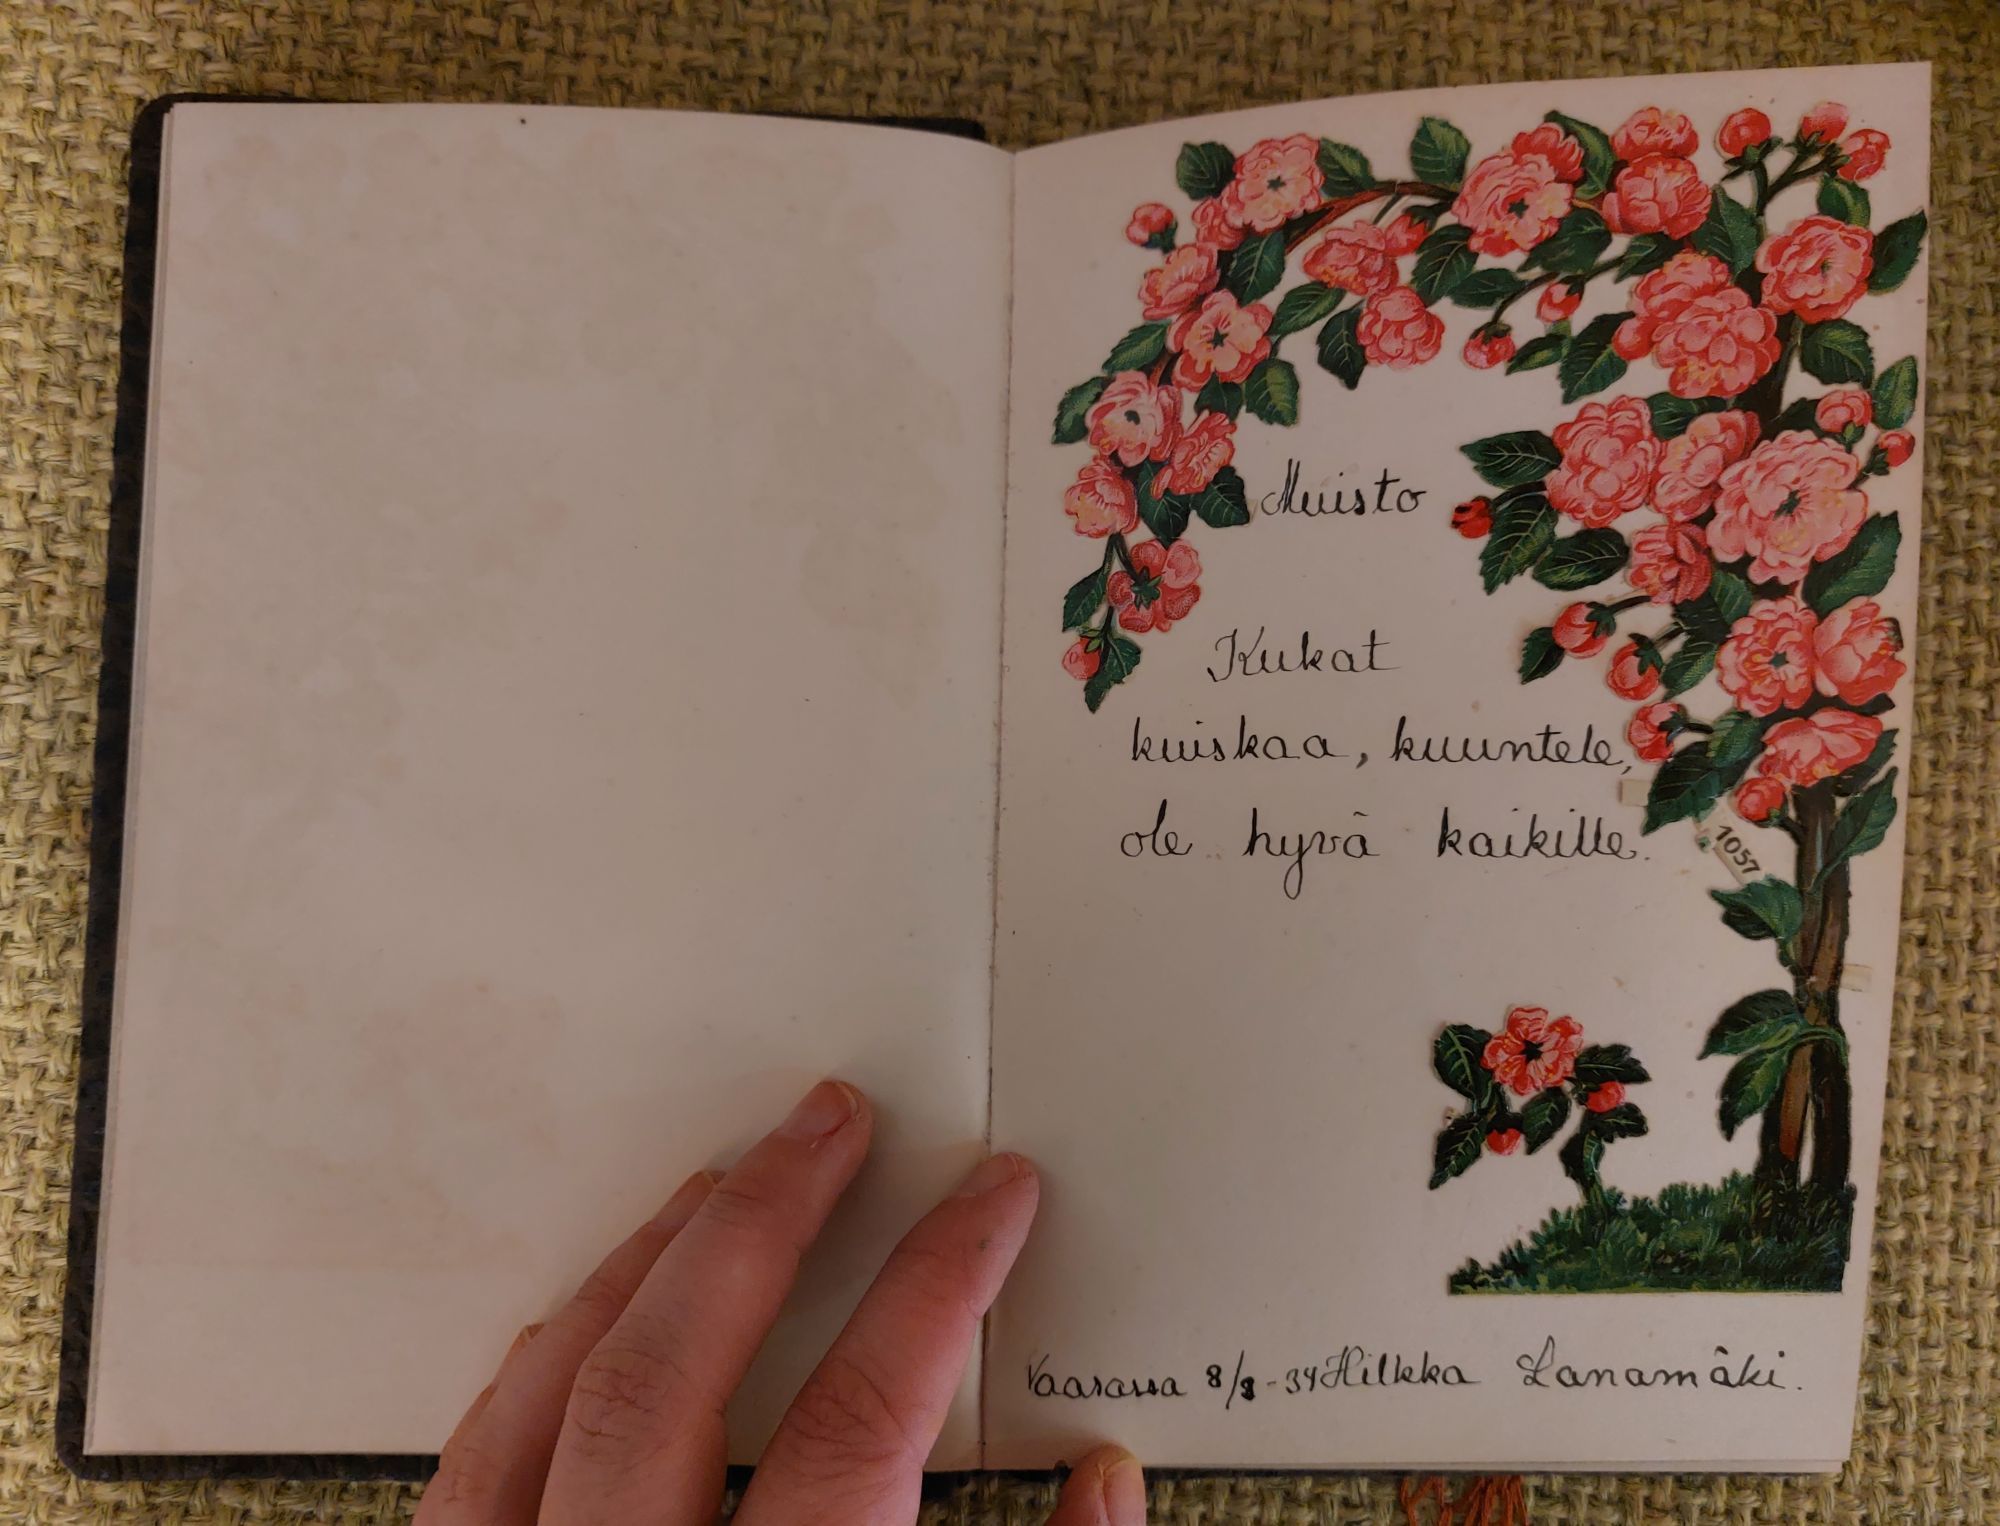 Muisto
Kukat
kuiskaa, kuuntele,
ole hyvä kaikille.
1057
Vaasassa 8/8-34 Hilkka Lanamäki.